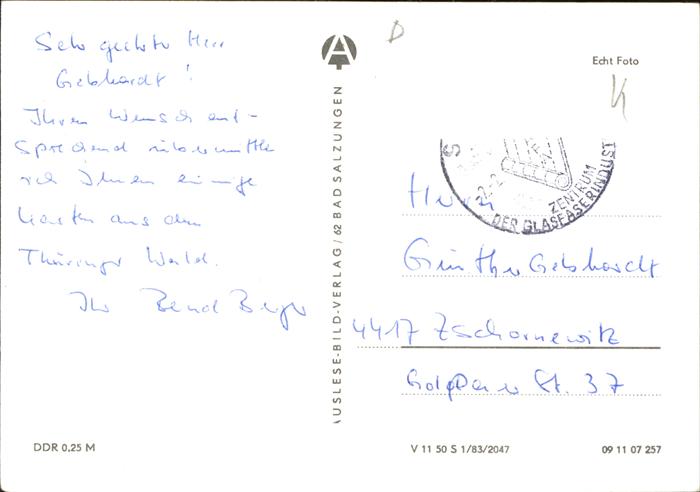 Sehr geehrter Herr
Gebhardt!
Ihrem Wunsch ent-
sprechend übermittle
ich Ihnen einige
Karten aus dem
Thüringer Wald.
Ihr Bernd Berger
AUSLESE-BILD-VERLAG / 62 BAD SALZUNGEN
A
D
Echt Foto
K
S
ZENTRUM
DER GLASFASERINDUST
Herrn
Günther Gebhardt
4417 Zschornewitz
St. 37
DDR 0,25 M
V 11 50 S 1/83/2047
09 11 07 257